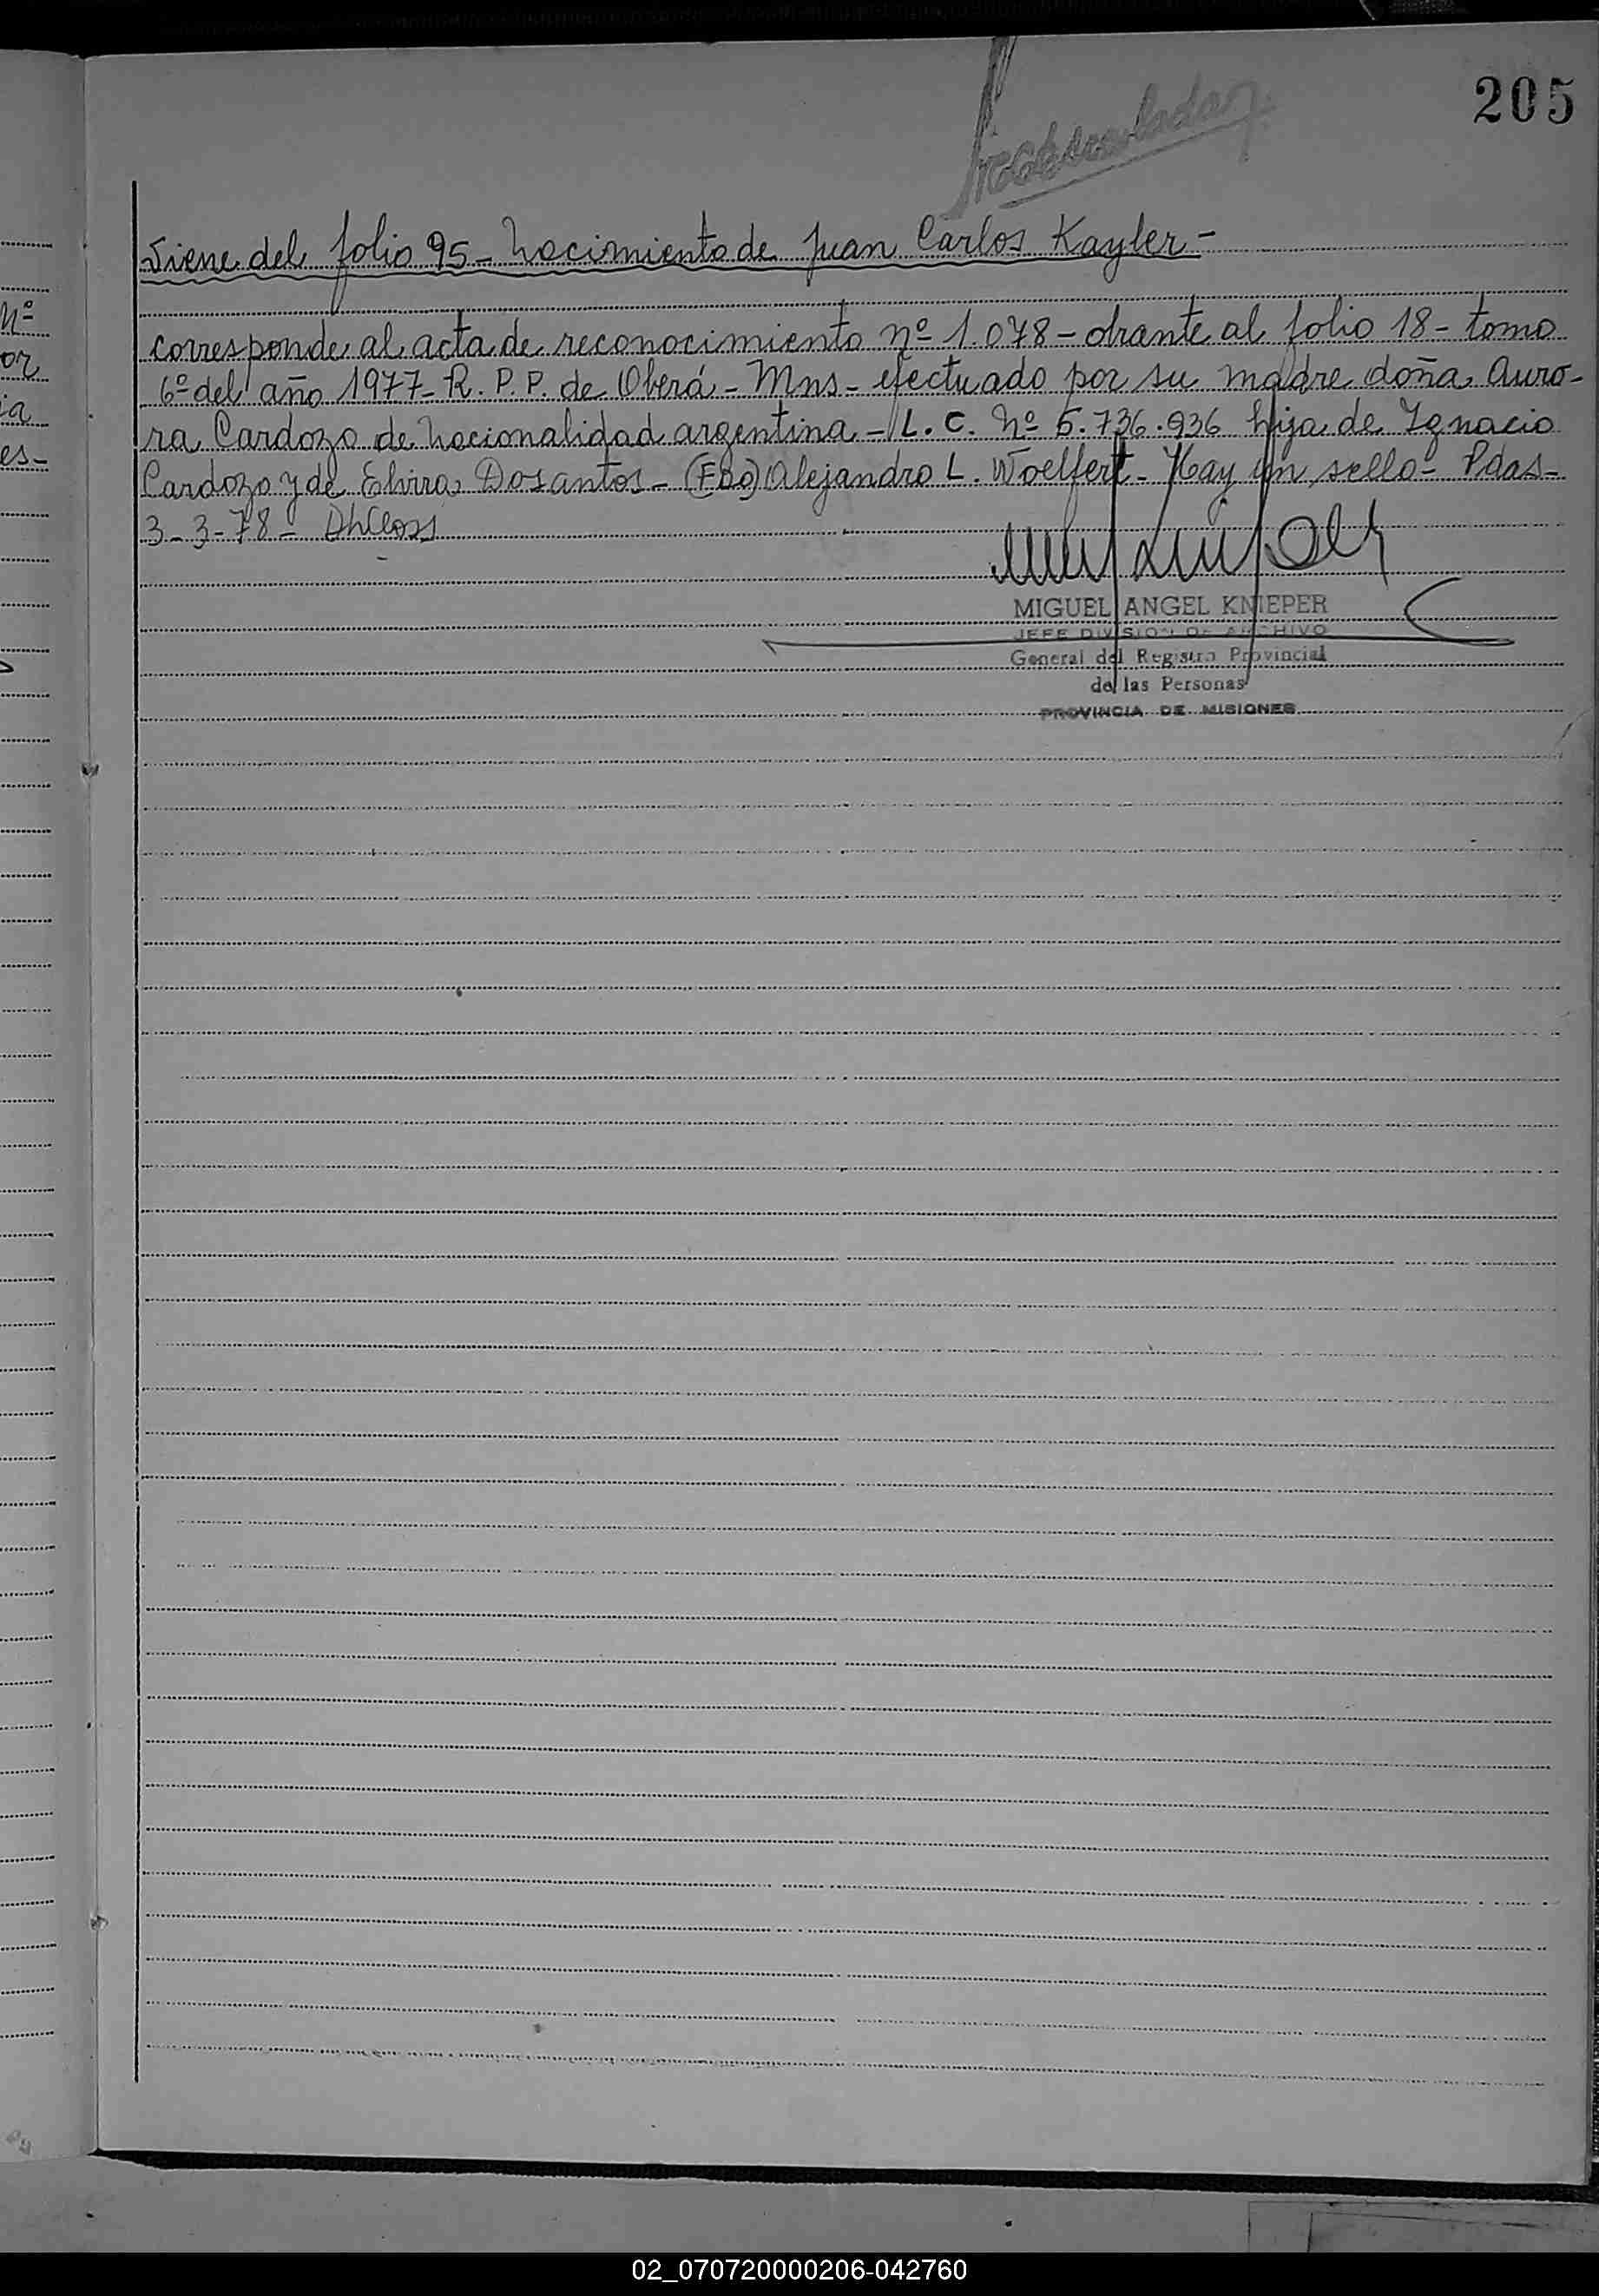 205
Viene del folio 95 - Nacimiento de Juan Carlos Kayler -
corresponde al acta de reconocimiento nº 1.078 - obrante al folio 18 - tomo
6º del año 1977 - R. P. P. de Oberá - Mns - efectuado por su madre doña Auro-
ra Cardozo de nacionalidad argentina - L. C. Nº 5.736.936 hija de Ignacio
Cardozo y de Elvira Dosantos - (Fdo) Alejandro L. Woelfert - Hay un sello - Pdas -
3-3-78 -
MIGUEL ANGEL KNIEPER
JEFE DIVISION DE ARCHIVO
General del Registro Provincial
de las Personas
PROVINCIA DE MISIONES
nº
or
ia
es-
02_070720000206-042760